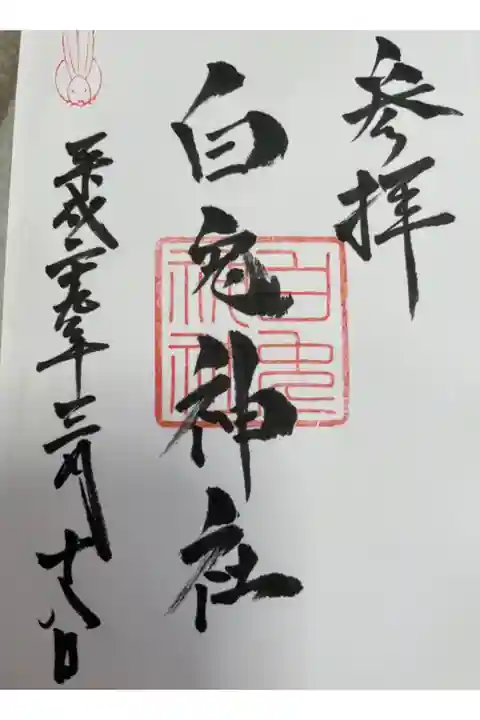 参拝
白兎神社
平成二十九年三月十八日
白兎
神社